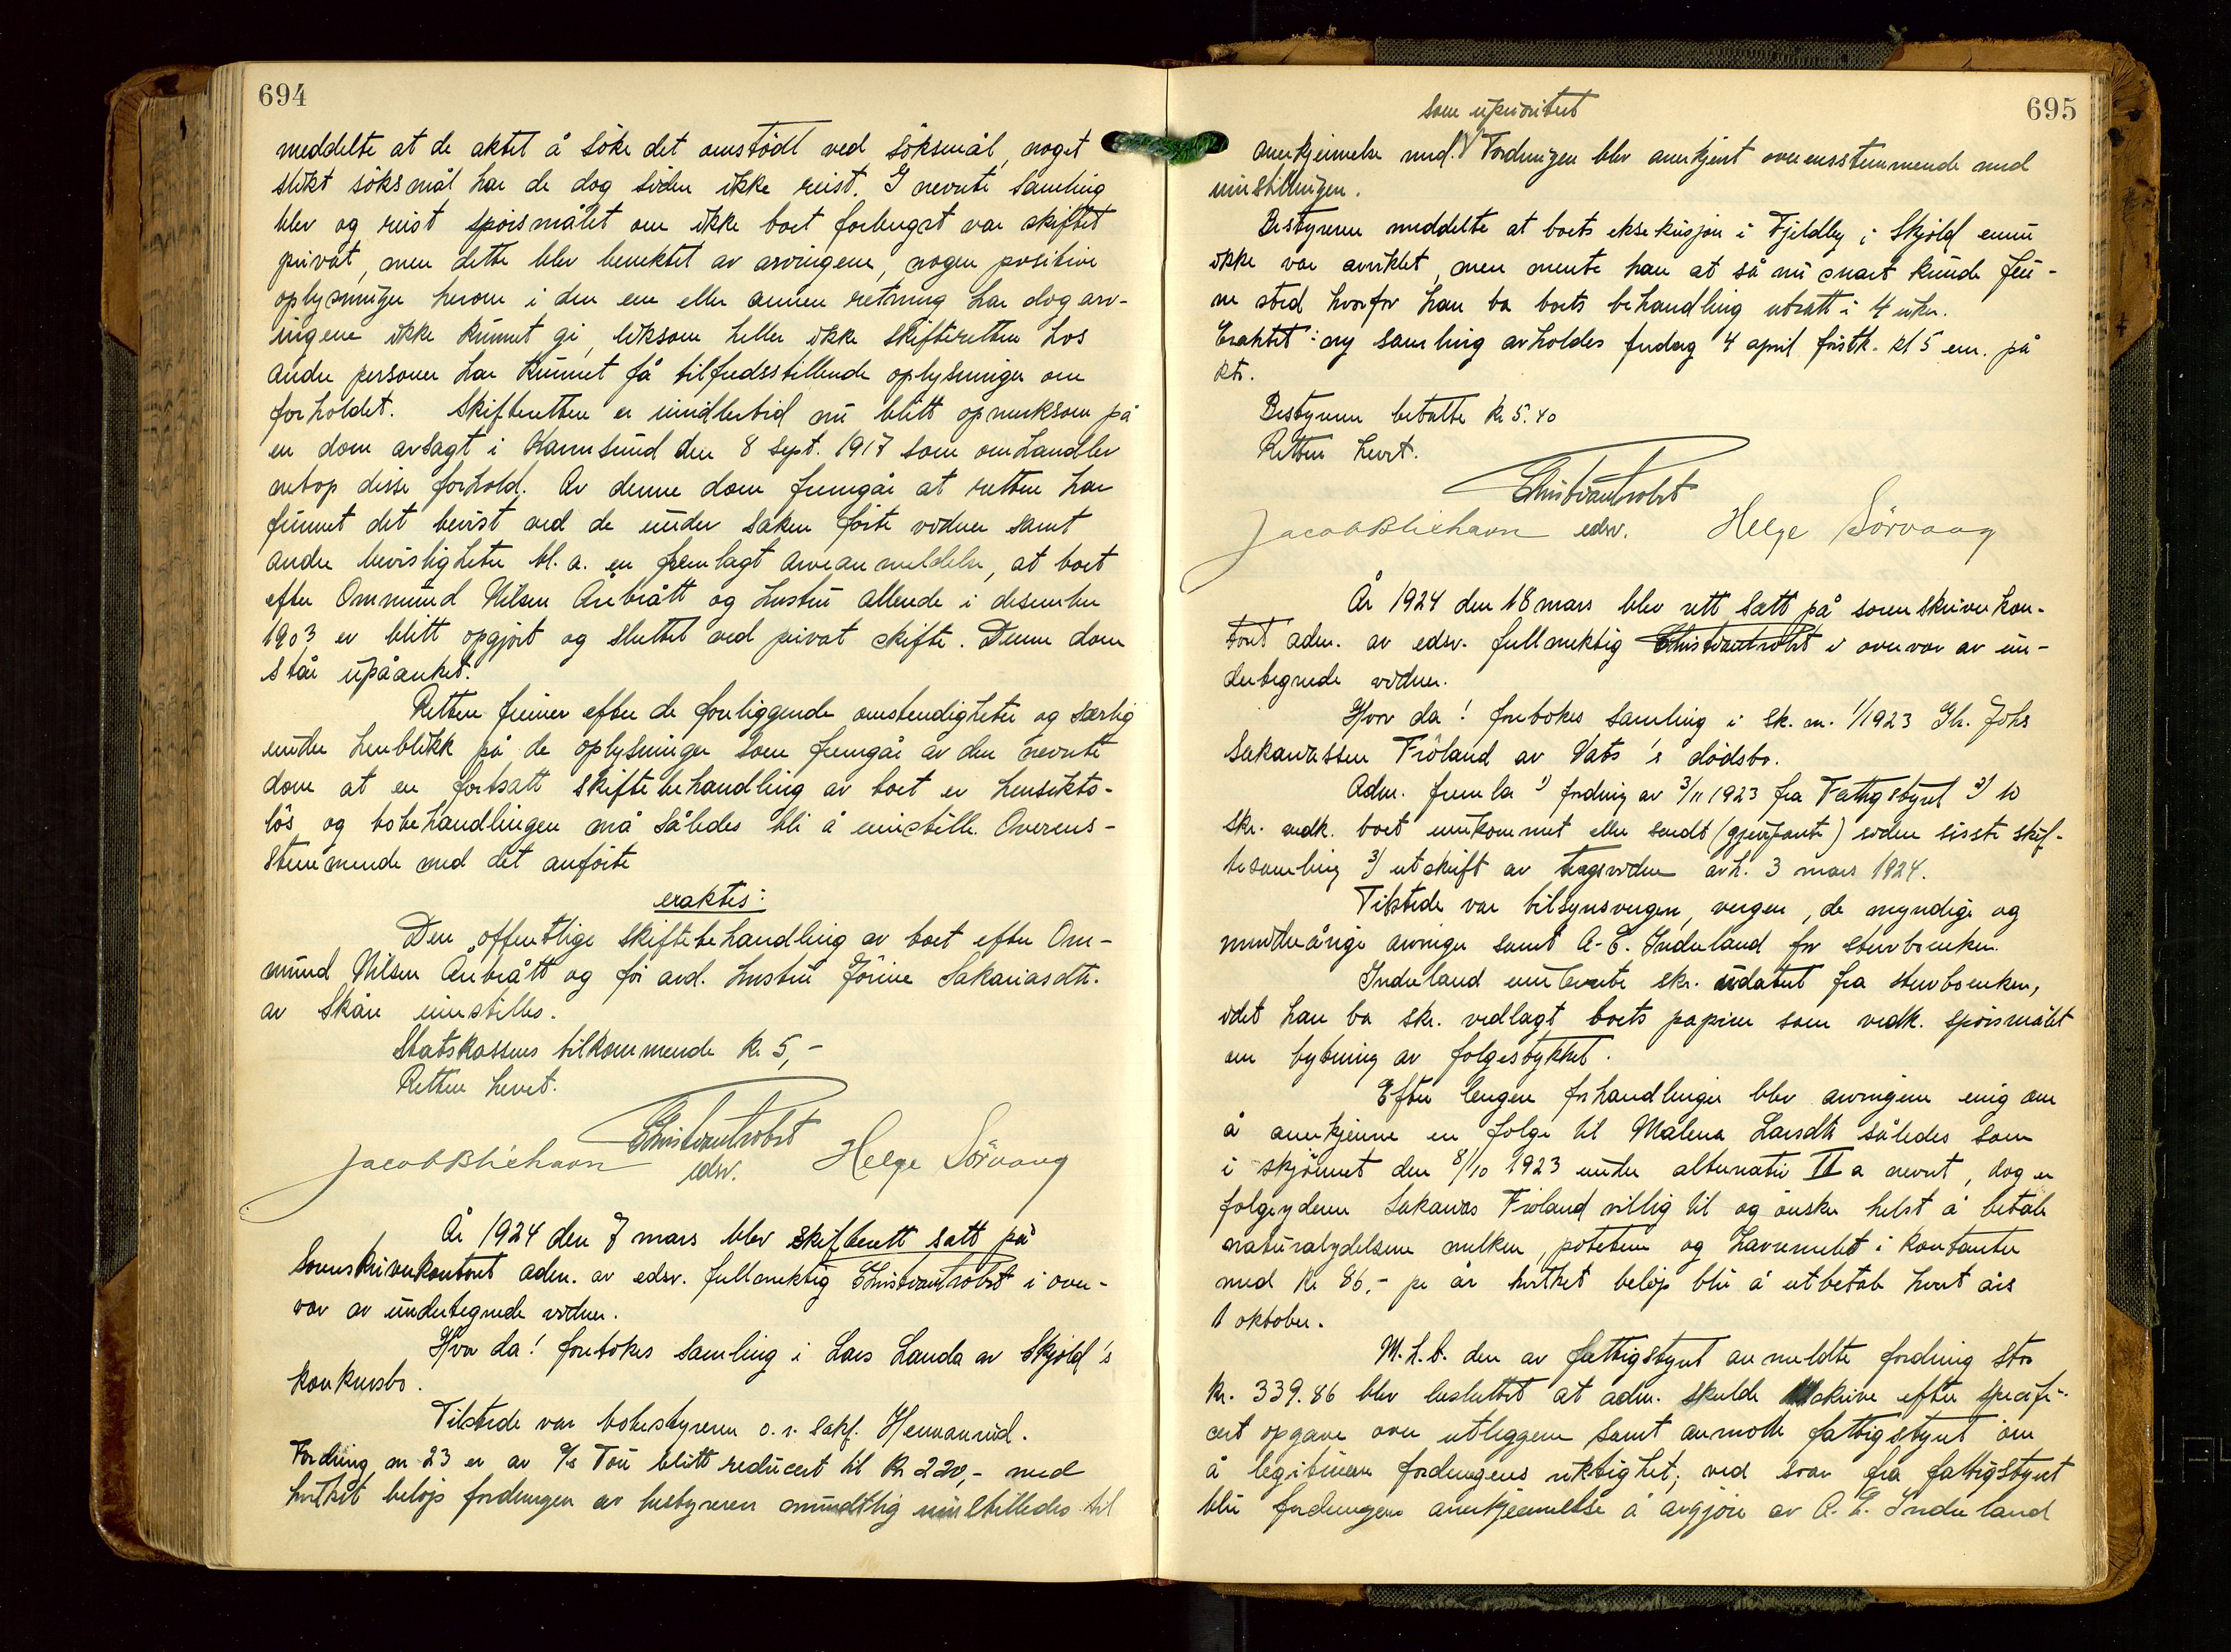 694
meddelte at de aktet å söke det omstödt ved söksmål, noget
slikt söksmål har de dog siden ikke reist. I nevnte samling
blev og reist spörsmålet om ikke boet forlengst var skiftet
privat, men dette blev benektet av arvingene, nogen positive
oplysninger herom i den ene eller annen retning har dog arv-
ingene ikke kunnet gi, liksom heller ikke skifteretten hos
andre personer har kunnet få tilfredsstillende oplysninger om
forholdet. Skifteretten er imidlertid nu blitt opmerksom på
en dom avsagt i Karmsund den 8 sept. 1917 som omhandler
netop disse forhold. Av denne dom fremgår at retten har
funnet det bevist ved de under saken förte vidner samt
andre bevisligheter bl. a. en fremlagt arveanmeldelse, at boet
efter Ommund Nilsen Årbrått og hustru allerede i desember
1903 er blitt opgjort og sluttet ved privat skifte. Denne dom
står upåanket.
Retten finner efter de foreliggende omstendigheter og særlig
under henblikk på de oplysninger som fremgår av den nevnte
dom at en fortsatt skiftebehandling av boet er hensikts-
lös og bobehandlingen må således bli å innstille. Overens-
stemmende med det anförte
eraktes:
Den offentlige skiftebehandling av boet efter Om-
mund Nilsen Årbrått og för avd. hustru Jörine Sakariasdtr.
av Skåre innstilles.
Statskassens tilkommende kr. 5,-
Retten hevet.
Christian Trobst
edsv.
Jacob Blichavn Helge Sörvaag
År 1924 den 7 mars blev skifterett satt på
sorenskriverkontoret adm. av edsv. fullmektig Christian Trobst i over-
vær av undertegnede vidner.
Hvor da! foretokes samling i Lars Landa av Skjold's
konkursbo.
Tilstede var bobestyreren o.r. sakf. Hermanrud.
Fordring nr 23 er av A/s Tou blitt reducert til kr 220,- med
hvilket belöp fordringen av bestyreren mundtlig innstilledes til
695
som uprioritert
anerkjennelse med. Fordringen blev anerkjent overensstemmende med
innstillingen.
Bestyreren meddelte at boets eksekusjon i Fjeldby i Skjold ennu
ikke var avviklet, men mente han at så nu snart kunde fin-
ne sted hvorfor han ba boets behandling utsatt i 4 uker.
Eraktet: ny samling avholdes fredag 4 april förstk. kl 5 em. på
ktr.
Bestyreren betalte kr 5.40
Retten hevet.
Christian Trobst
Jacob Blichavn edsv. Helge Sörvaag
År 1924 den 18 mars blev rett satt på sorenskriverkon-
toret adm. av edsv. fullmektig Christian Trobst i overvær av un-
dertegnede vidner.
Hvor da! foretokes samling i sk. nr. 1/1923 Gb. Johs
Sakariassen Fröland av Vats's dödsbo.
Adm. fremla 1) fordring av 3/11 1923 fra Fattigstyret 2) 10
skr. vedk. boet innkommet eller sendt (gjenparte) siden sisste skif-
tesamling 3) utskrift av tingsvidne avh. 3 mars 1924.
Tilstede var tilsynsvergen, vergen, de myndige og
mindreårige arvinger samt A. E. Inderland for stervboenken.
Inderland innleverte skr. udatert fra stervboenken,
idet han ba skr. vedlagt boets papirer som vedk. spörsmålet
om bytning av folgestykket.
Efter lengere forhandlinger blev arvingene enig om
å anerkjenne en folge til Malena Larsdtr således som
i skjönnet den 8/10 1923 under alternativ II a nevnt, dog er
folgeyderen Sakarias Fröland villig til og önsker helst å betale
naturalydelsene melken, potetene og havremelet i kontanter
med kr. 86,- pr år hvilket belöp blir å utbetale hvert års
1 oktober.
M.h.t. den av fattigstyret anmeldte fordring stor
kr. 339.86 blev besluttet at adm. skulde skrive efter specifi-
cert opgave over utleggene samt anmode fattigstyret om
å legitimere fordringens riktighet; ved svar fra fattigstyret
blir fordringens anerkjennelse å avgjöre av A. E. Inderland